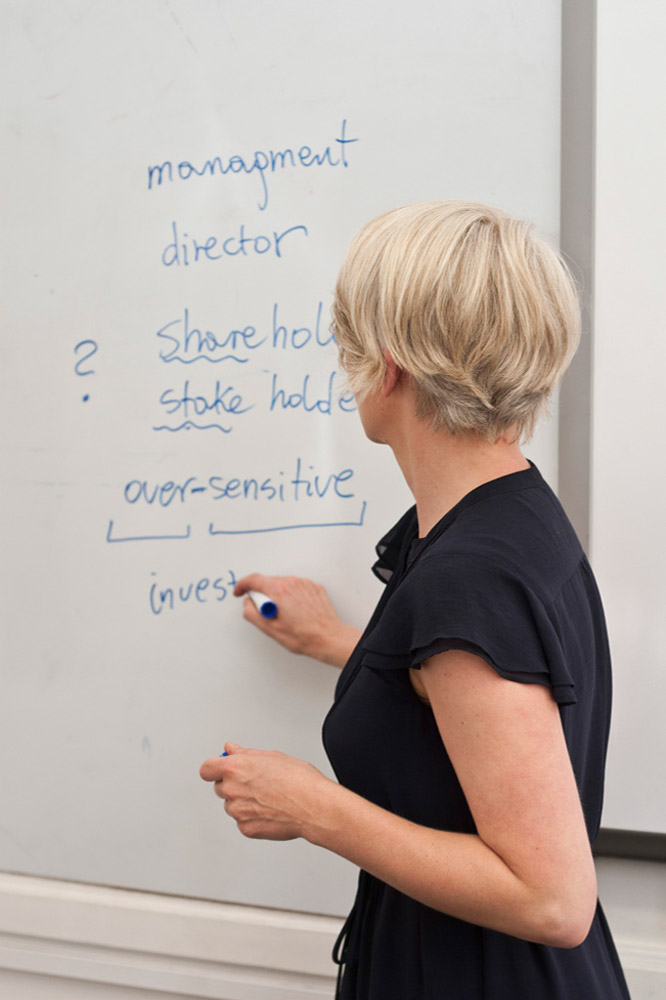 managment
director
? sharehol
stake holde
over-sensitive
invest